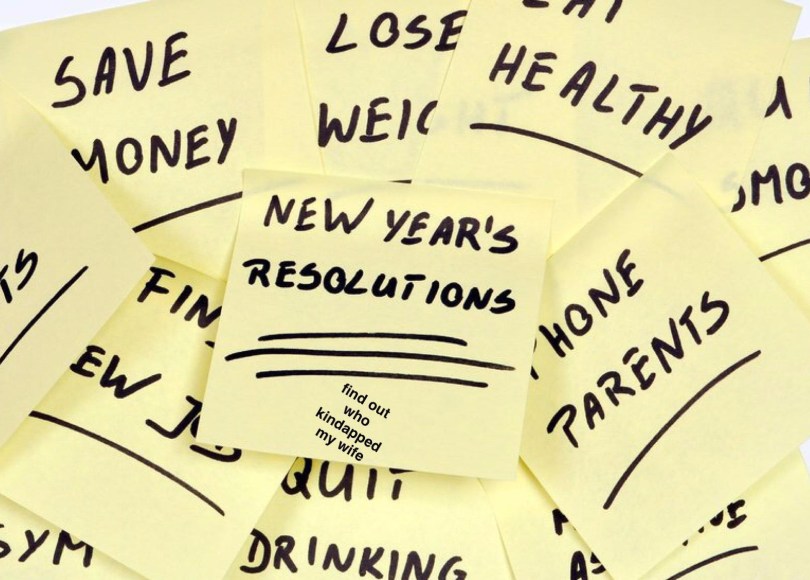 SAVE
MONEY
LOSE
WEIG
EAT
HEALTHY
SMO
NEW YEAR'S
RESOLUTIONS
find out
who
kindapped
my wife
TS
FIN
EW JOB
PHONE
PARENTS
QUIT
DRINKING
GYM